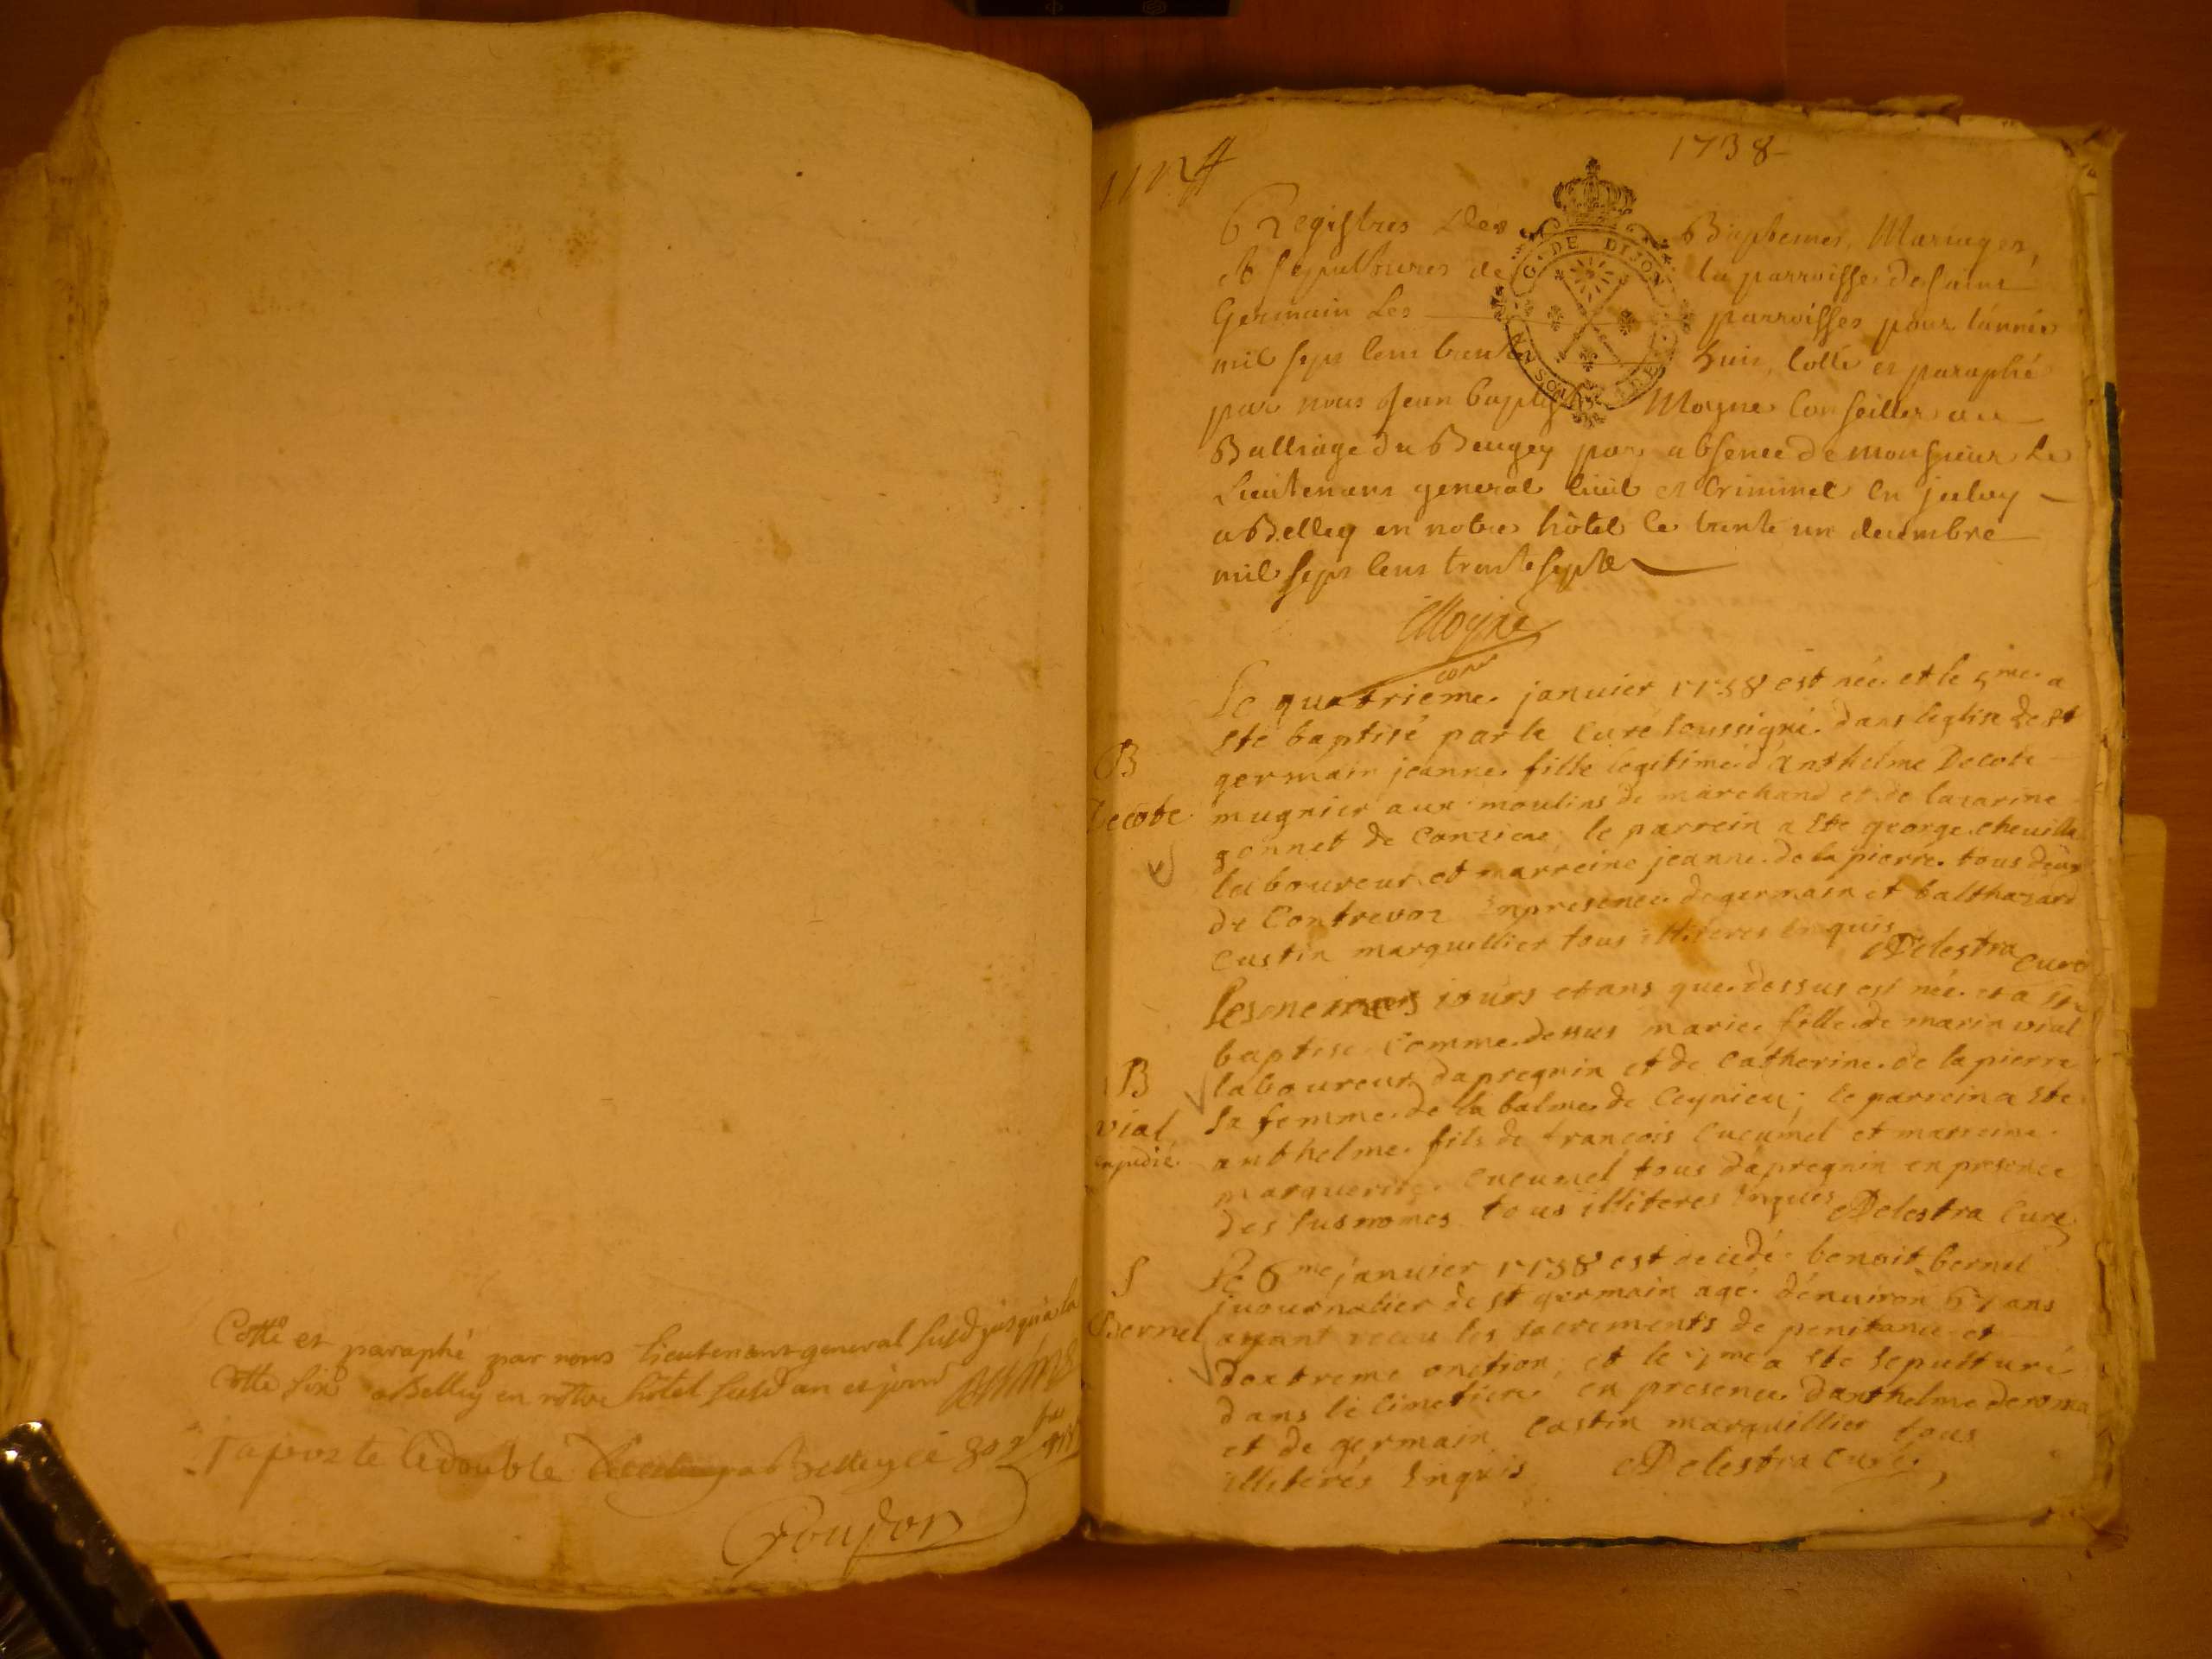 Cotté et paraphé par nous lieutenant general susd jusqu'a la
Cotte six a Belley en nôtre hôtel susd an et jour
J'aporte le double a Belley ce
1738
Registres des Baptemes, Mariages,
et sepultures de la parroisse de saint
Germain Les parroisses pour l'année
mil sept cent trente huit, Cotté et paraphé
par nous Jean baptiste Moyne Conseiller au
Balliage du Beugey par absence de monsieur Le
Lieutenant general Civil et Criminel en iceluy
a Belley en notre hôtel le trente un decembre
mil sept cent trente sept
C. DE DIJON
Moyne
con
Le quatrieme janvier 1738 est née et le 5me a
B
Decote
V
este baptisé par le curé soussigné dans l'eglise de st
germain jeanne fille legitime d'anthelme Decote
mugnier aux moulins de marchand et de lazarine
gonnet de Conzieu le parrein a ste george chevilla
laboureur et marreine jeanne de la pierre tous deux
de Contrevoz en presence de germain et balthazard
Castin marguillier tous illiteres enquis Delestra curé
Les memes jours et ans que dessus est née et a ste
B
vial
expedié
baptise comme dessus marie fille de marin vial
laboureur d'apregnin et de Catherine de la pierre
sa femme de la balme de Ceynieu; le parrein a ste
anthelme fils de françois Cucumel et marreine
marguerite Cucumel tous d'apregnin en presence
des susnomés tous illiteres enquis Delestra Curé
S
Bernel
Le 6me janvier 1738 est decedé benoit bernel
journalier de st germain agé d'environ 67 ans
ayant receu les sacrements de penitance et
d'extreme onction, et le 7me a ste sepulturé
dans le cimetiere en presence d'anthelme
et de germain Castin marguillier tous
illiterés enquis Delestra curé